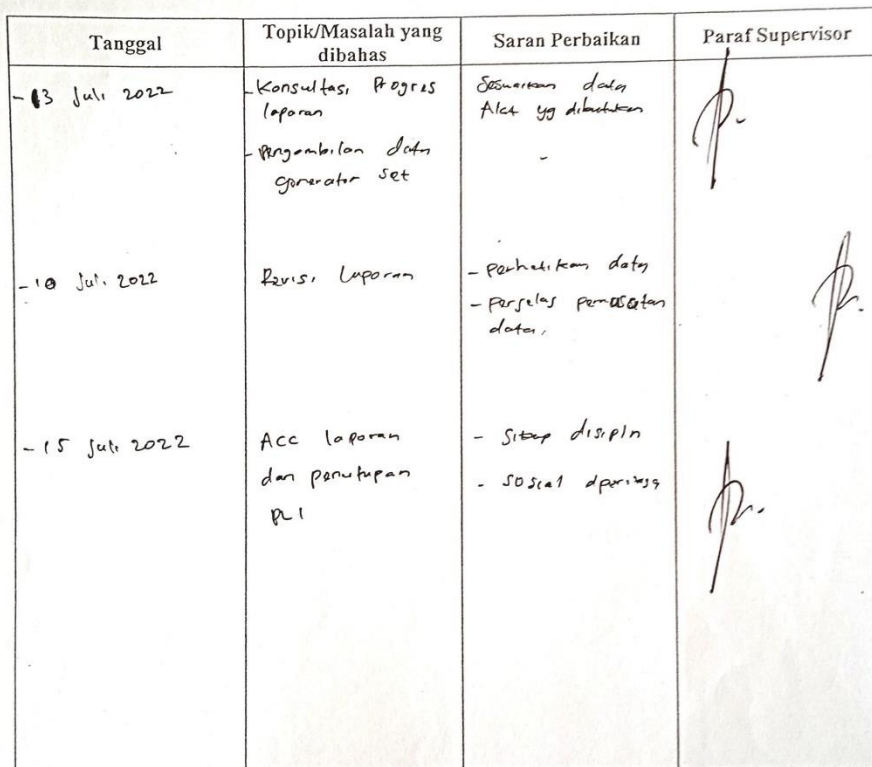 Tanggal
Topik/Masalah yang
dibahas
Saran Perbaikan
Paraf Supervisor
- 13 Juli 2022
- Konsultasi Progres
laporan
- Pengambilan data
generator set
Sesuaikan data
Alat yg dibutuhkan
-
- 10 Juli 2022
Revisi Laporan
- perhatikan data
- perjelas
data.
- 15 Juli 2022
Acc laporan
dan penutupan
PLI
- Sikap disipln
- sosial